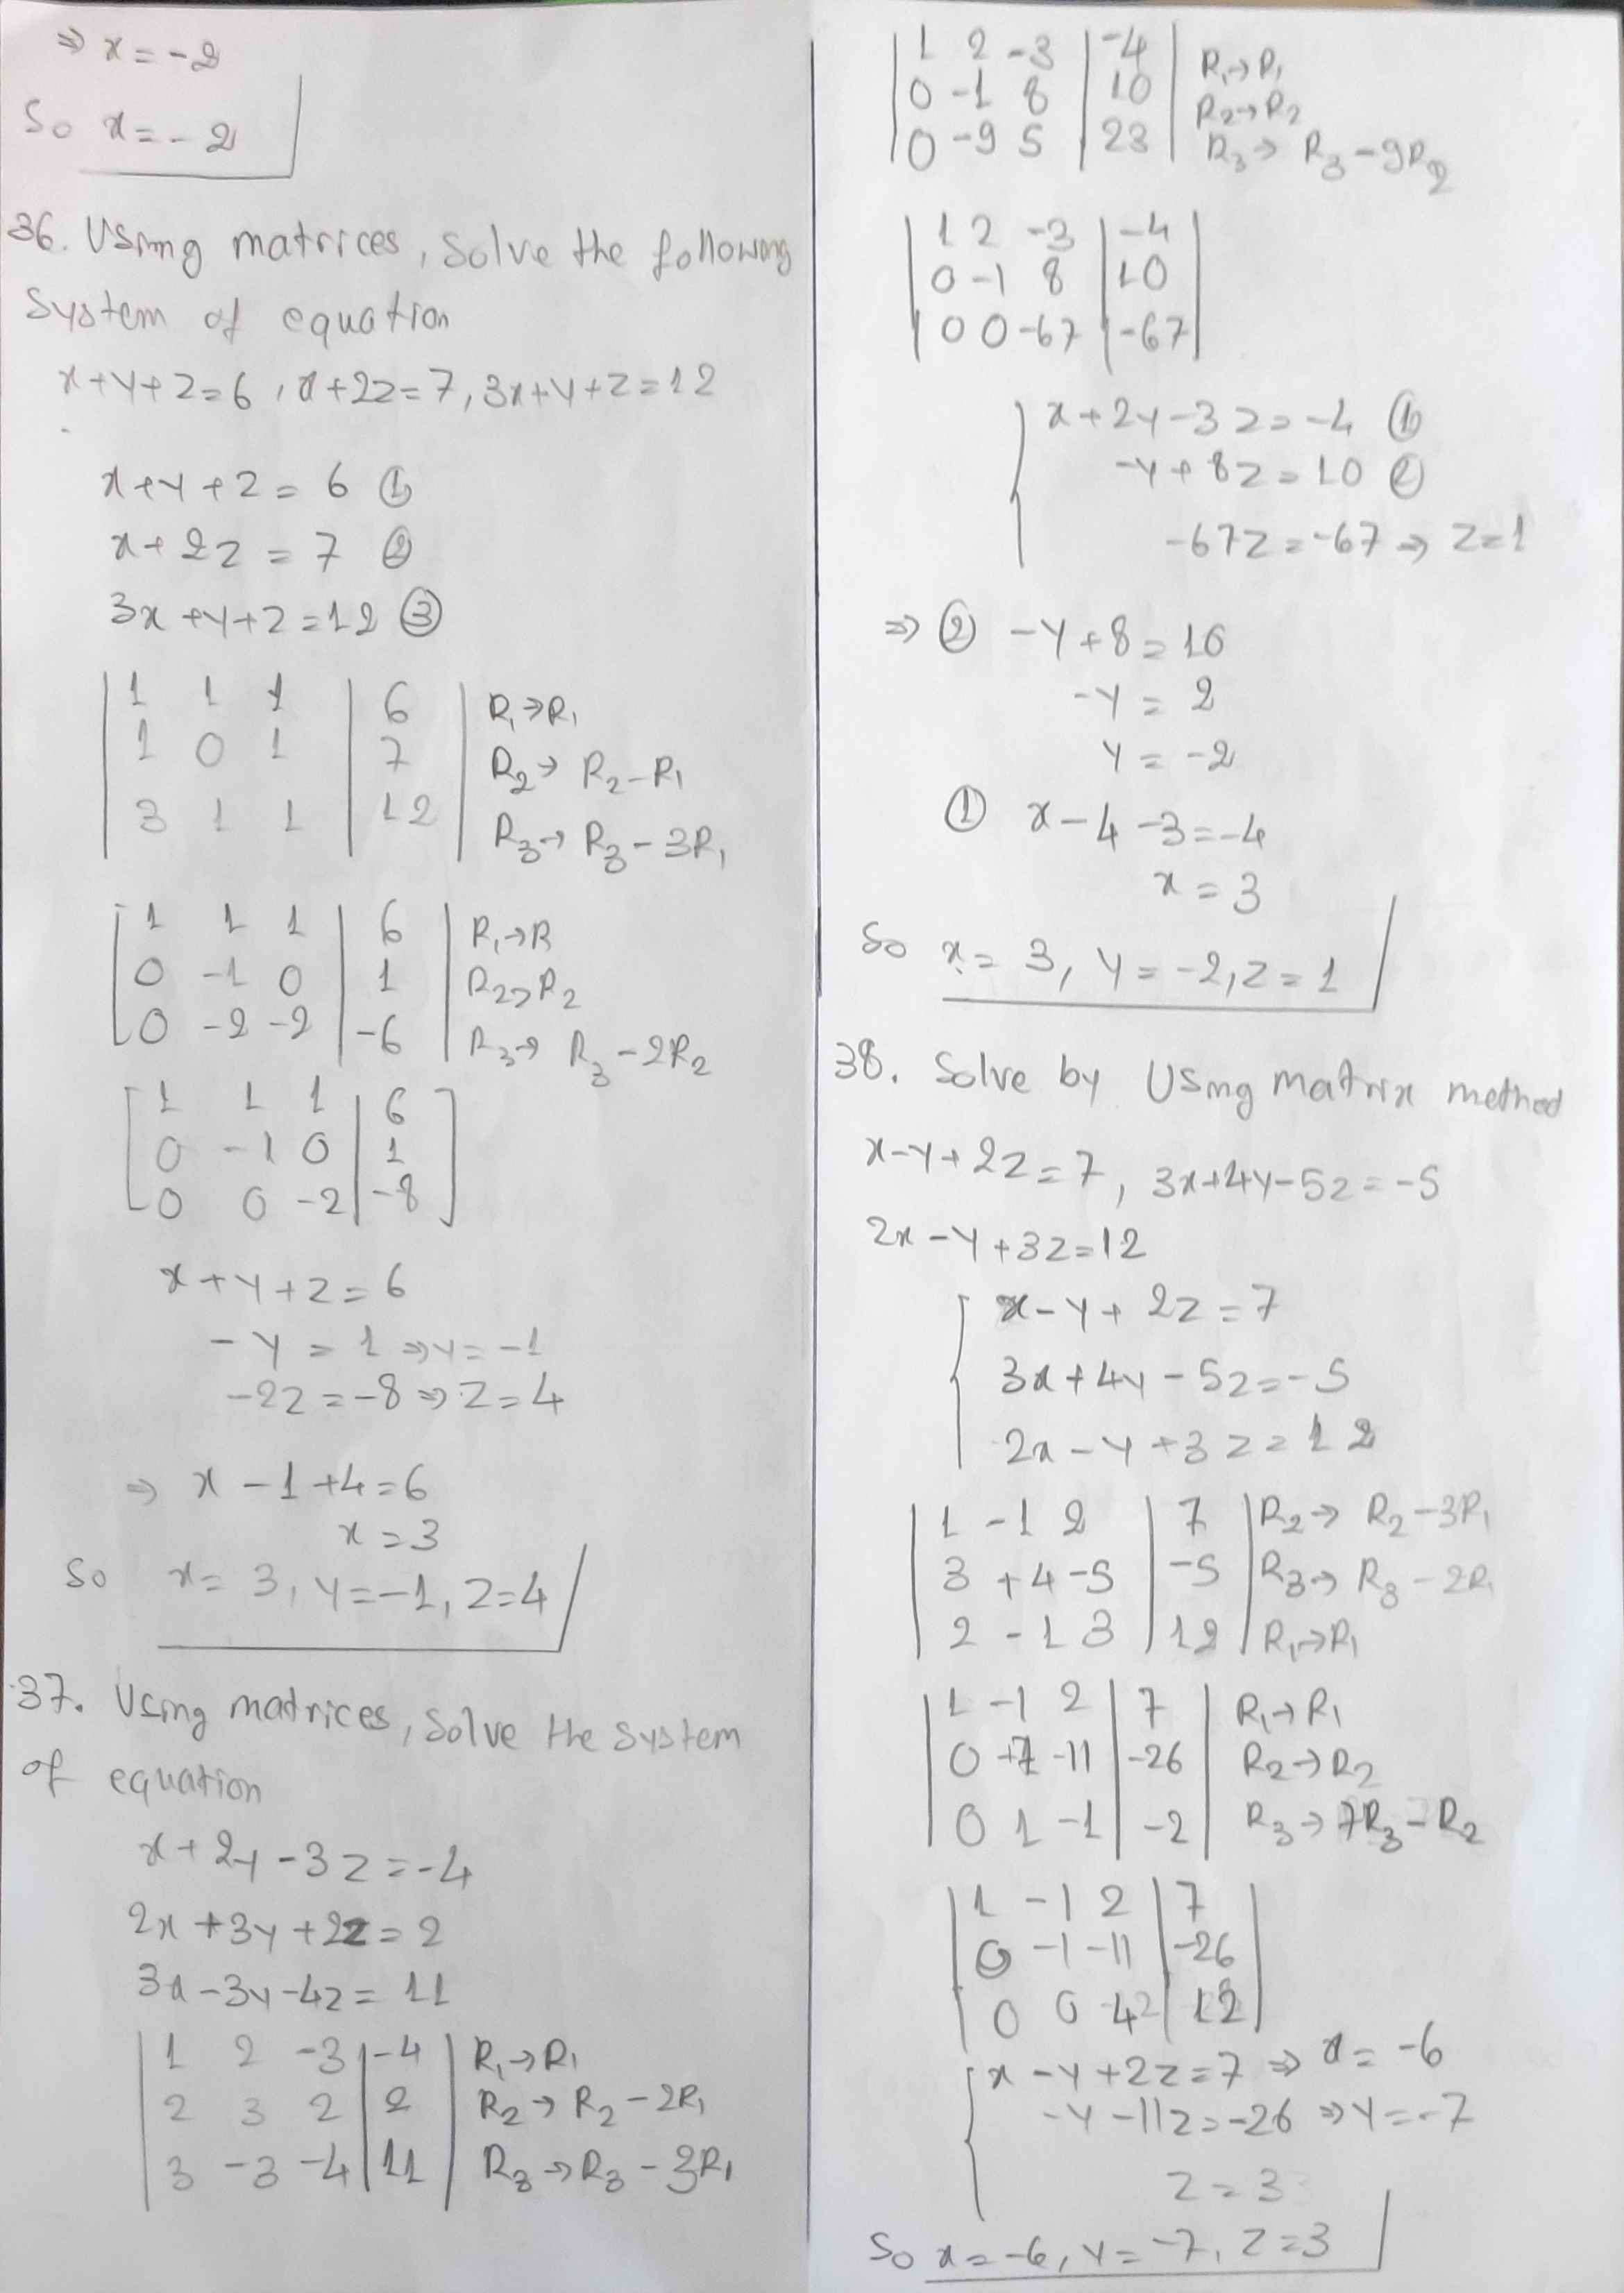 ⇒ x = -2
So x = -2
36. Using matrices, Solve the following
System of equation
x+y+z=6, x+2z=7, 3x+y+z=12
x+y+z = 6 ①
x+2z = 7 ②
3x+y+z=12 ③
1 1 1 | 6 | R₁→R₁
1 0 1 | 7 | R₂→ R₂-R₁
3 1 1 | 12 | R₃→ R₃-3R₁
1 1 1 | 6 | R₁→R
0 -1 0 | 1 | R₂→R₂
0 -2 -2 | -6 | R₃→ R₃-2R₂
1 1 1 | 6
0 -1 0 | 1
0 0 -2 | -8
x+y+z=6
-y = 1 ⇒ y = -1
-2z = -8 ⇒ z=4
⇒ x-1+4=6
x=3
So x = 3, y=-1, z=4
37. Using matrices, Solve the System
of equation
x+2y-3z=-4
2x+3y+2z=2
3x-3y-4z= 11
1 2 -3 | -4 | R₁→R₁
2 3 2 | 2 | R₂→ R₂-2R₁
3 -3 -4 | 11 | R₃→R₃-3R₁
1 2 -3 | -4 | R₁→R₁
0 -1 8 | 10 | R₂→R₂
0 -9 5 | 23 | R₃→ R₃-9R₂
1 2 -3 | -4
0 -1 8 | 10
0 0 -67 | -67
x+2y-3z=-4 ①
-y+8z=10 ②
-67z=-67 ⇒ z=1
⇒ ② -y+8=10
-y = 2
y = -2
① x-4-3=-4
x = 3
So x = 3, y = -2, z = 1
38. Solve by Using matrix method
x-y+2z=7, 3x+4y-5z=-5
2x-y+3z=12
x-y+2z=7
3x+4y-5z=-5
2x-y+3z=12
1 -1 2 | 7 | R₂→ R₂-3R₁
3 +4 -5 | -5 | R₃→ R₃-2R₁
2 -1 3 | 12 | R₁→R₁
1 -1 2 | 7 | R₁→R₁
0 +7 -11 | -26 | R₂→R₂
0 1 -1 | -2 | R₃→7R₃-R₂
1 -1 2 | 7
0 -1 -11 | -26
0 0 42 | 12
x-y+2z=7 ⇒ x=-6
-y-11z=-26 ⇒ y=-7
z=3
So x=-6, y=-7, z=3